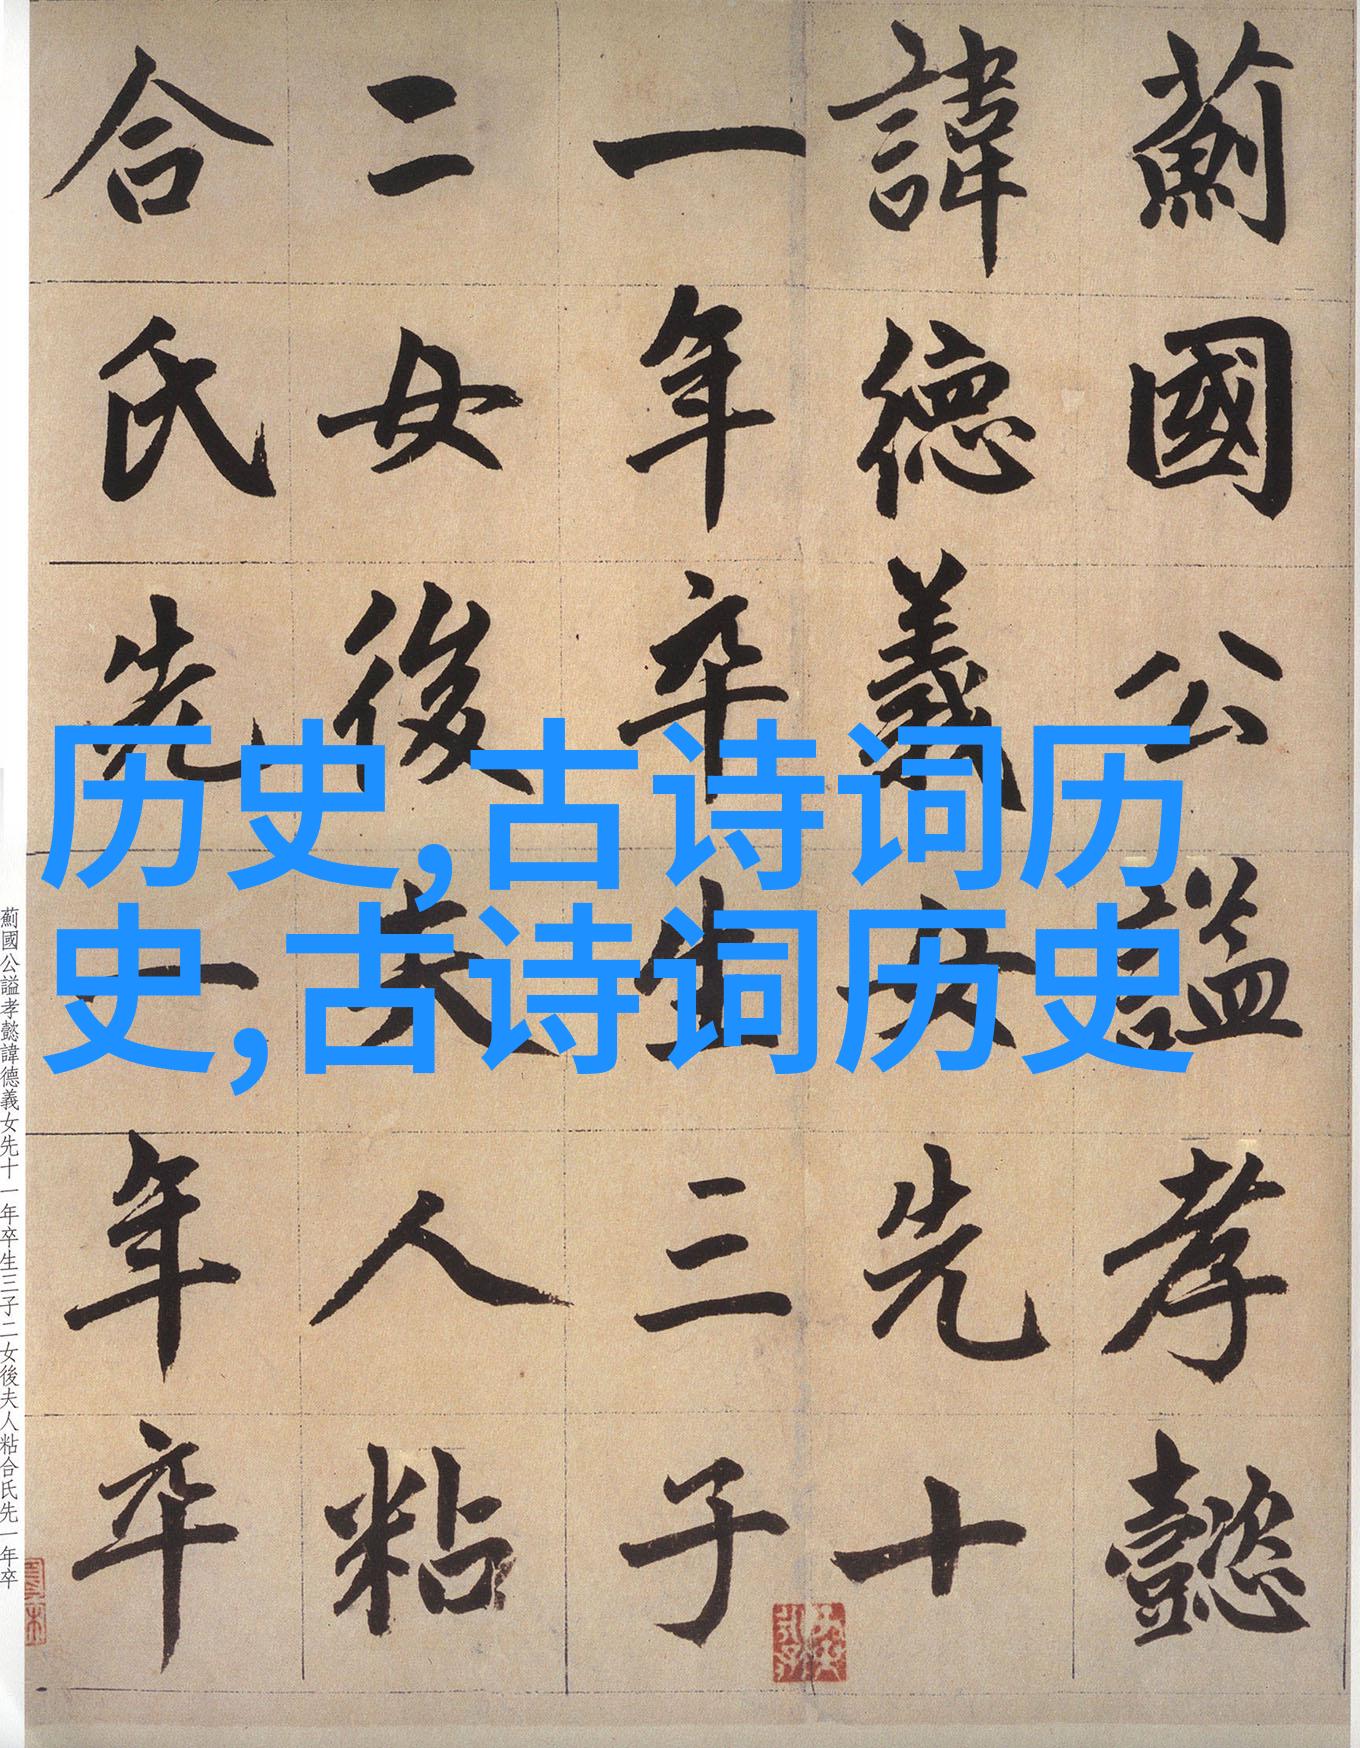 薊國公謚孝懿
諱德義女先十
一年卒生三子
二女後夫人粘
合氏先一年卒
历史,古诗词历
史,古诗词历史
薊國公謚孝懿諱德義女先十一年卒生三子二女後夫人粘合氏先一年卒